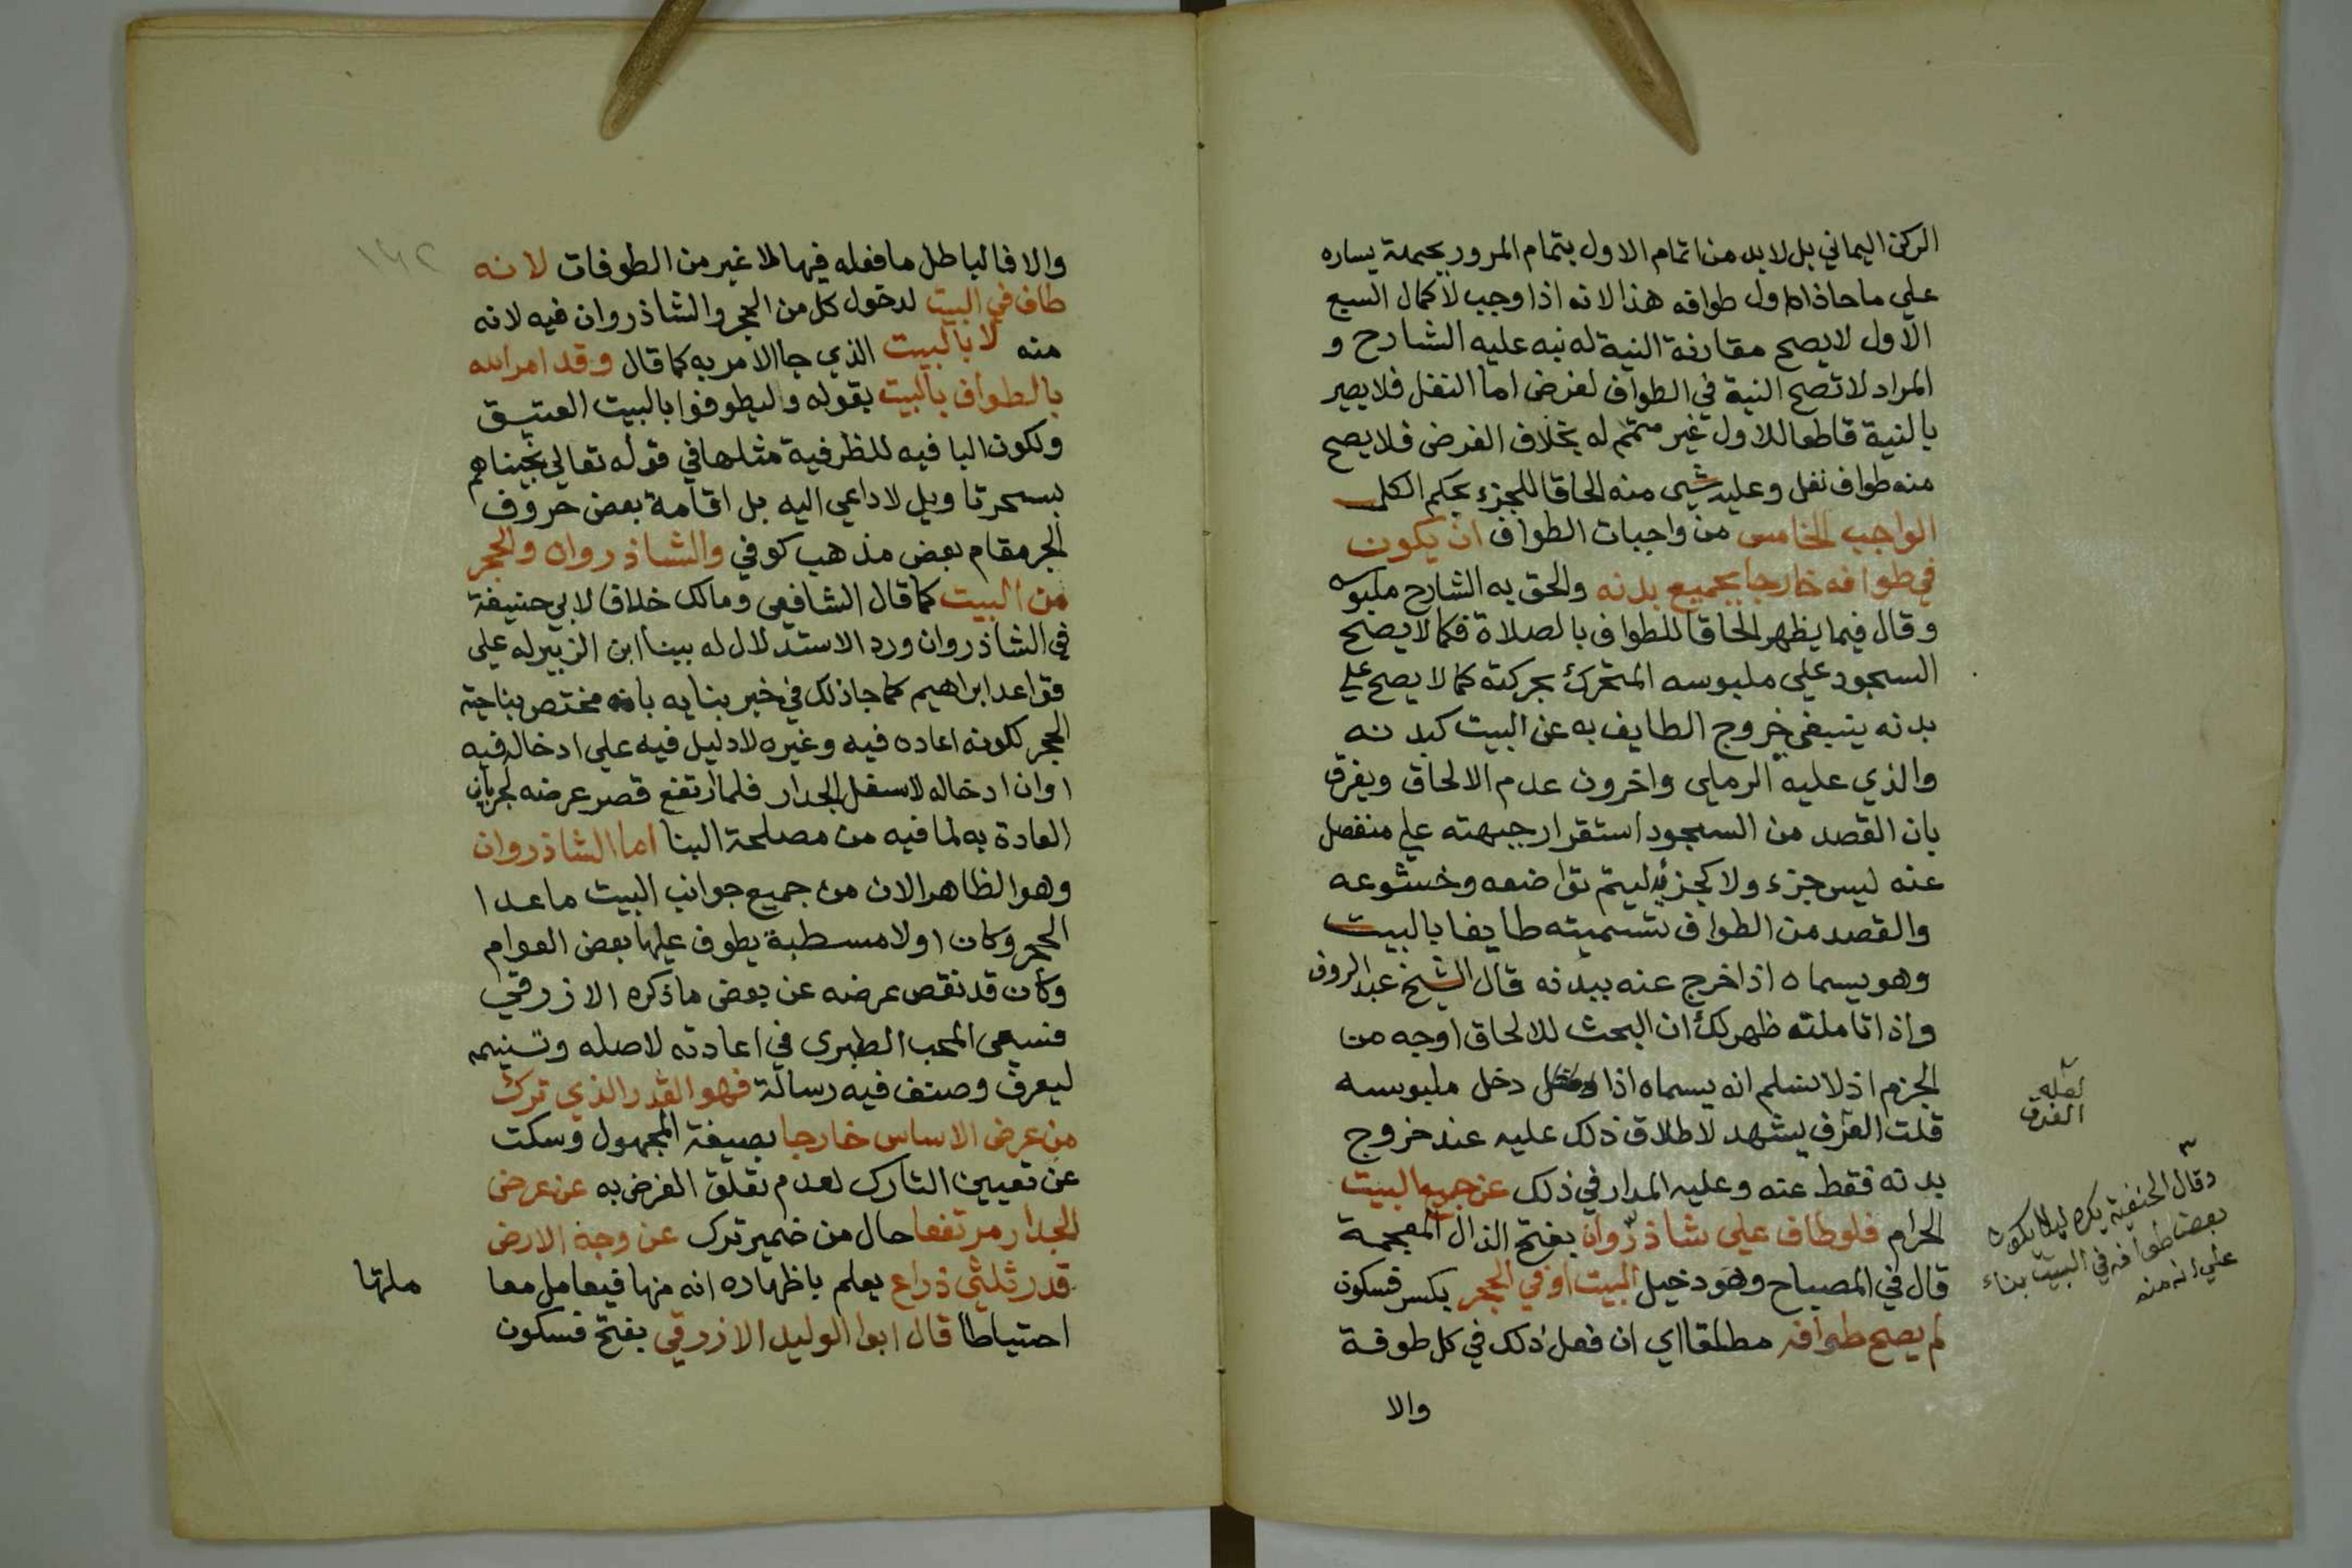 الركن اليماني بل لا بد من اتمام الاول بتمام المرور بجملة يساره
علي ما حاذاه اول طوافه هذا لانه اذا وجب لاكمال السبع
الاول لا يصح مقارنة النية له نبه عليه الشارح و
المراد لا تصح النية في الطواف لفرض اما النفل فلا يصير
بالنية قاطعا للاول غير متمم له بخلاف الفرض فلا يصح
منه طواف نفل وعليه شي منه الحاقا للجزء بحكم الكل
الواجب الخامس من واجبات الطواف ان يكون
في طوافه خارجا بجميع بدنه والحق به الشارح ملبوسه
وقال فيما يظهر الحاقا للطواف بالصلاة فكما لا يصح
السجود علي ملبوسه المتحرك بحركته كما لا يصح علي
بدنه ينبغي خروج الطايف به عن البيت كبدنه
والذي عليه الرملي واخرون عدم الالحاق ويفرق
بان القصد من السجود استقرار جبهته علي منفصل
عنه ليس جزء ولا كجزئه ليتم تواضعه وخشوعه
والقصد من الطواف تسميته طايفا بالبيت
وهو يسماه اذا خرج عنه ببدنه قال الشيخ عبد الروف
واذا تاملته ظهر لك ان البحث للالحاق اوجه من
الجزم اذ لا نسلم انه يسماه اذا دخل ملبوسه
قلت العرف يشهد لاطلاق ذلك عليه عند خروج
بدنه فقط عنه وعليه المدار في ذلك عن جميع البيت
الحرام فلو طاف علي شاذروان بفتح الذال المعجمة
قال في المصباح وهو دخيل البيت او في الحجر بكسر فسكون
لم يصح طوافه مطلقا اي ان فعل ذلك في كل طوفة
والا
لعله
الفرق
وقال الحنفية يكره ليلا يكون
بعض طوافه في البيت بناء
علي انه منه
١٤٢
والا فالباطل ما فعله فيها لا غير من الطوفات لانه
طاف في البيت لدخول كل من الحجر والشاذروان فيه لانه
منه لا بالبيت الذي جا الامر به كما قال وقد امر الله
بالطواف بالبيت بقوله وليطوفوا بالبيت العتيق
ولكون البا فيه للظرفية مثلها في قوله تعالي نجيناهم
بسحر تاويل لا داعي اليه بل اقامة بعض حروف
الجر مقام بعض مذهب كوفي والشاذروان والحجر
من البيت كما قال الشافعي ومالك خلافا لابي حنيفة
في الشاذروان ورد الاستدلال له ببناء ابن الزبير له علي
قواعد ابراهيم كما جا ذلك في خبر بنايه بانه مختص بناحية
الحجر لكونه اعاده فيه وغيره لا دليل فيه علي ادخاله فيه
او ان ادخاله لاسفل الجدار فلما ارتفع قصر عرضه لجريان
العادة به لما فيه من مصلحة البنا اما الشاذروان
وهو الظاهر الان من جميع جوانب البيت ما عدا
الحجر وكان اولا مسطبة يطوف عليها بعض العوام
وكان قد نقص عرضه عن بعض ما ذكره الازرقي
فسعي المحب الطبري في اعادته لاصله وتسنيمه
ليعرف وصنف فيه رسالة فهو القدر الذي ترك
من عرض الاساس خارجا بصيغة المجهول وسكت
عن تعيين التارك لعدم تعلق الغرض به عن عرض
الجدار مرتفعا حال من ضمير ترك عن وجه الارض
قدر ثلثي ذراع يعلم باظهاره انه منها فيعامل معا
ملتها
احتياطا قال ابوا الوليد الازرقي بفتح فسكون